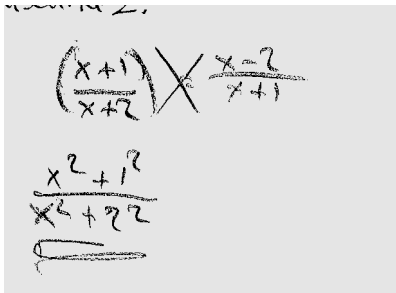 2.
(x+1/x+2) X x-2/x+1
x²+1²/x²+22